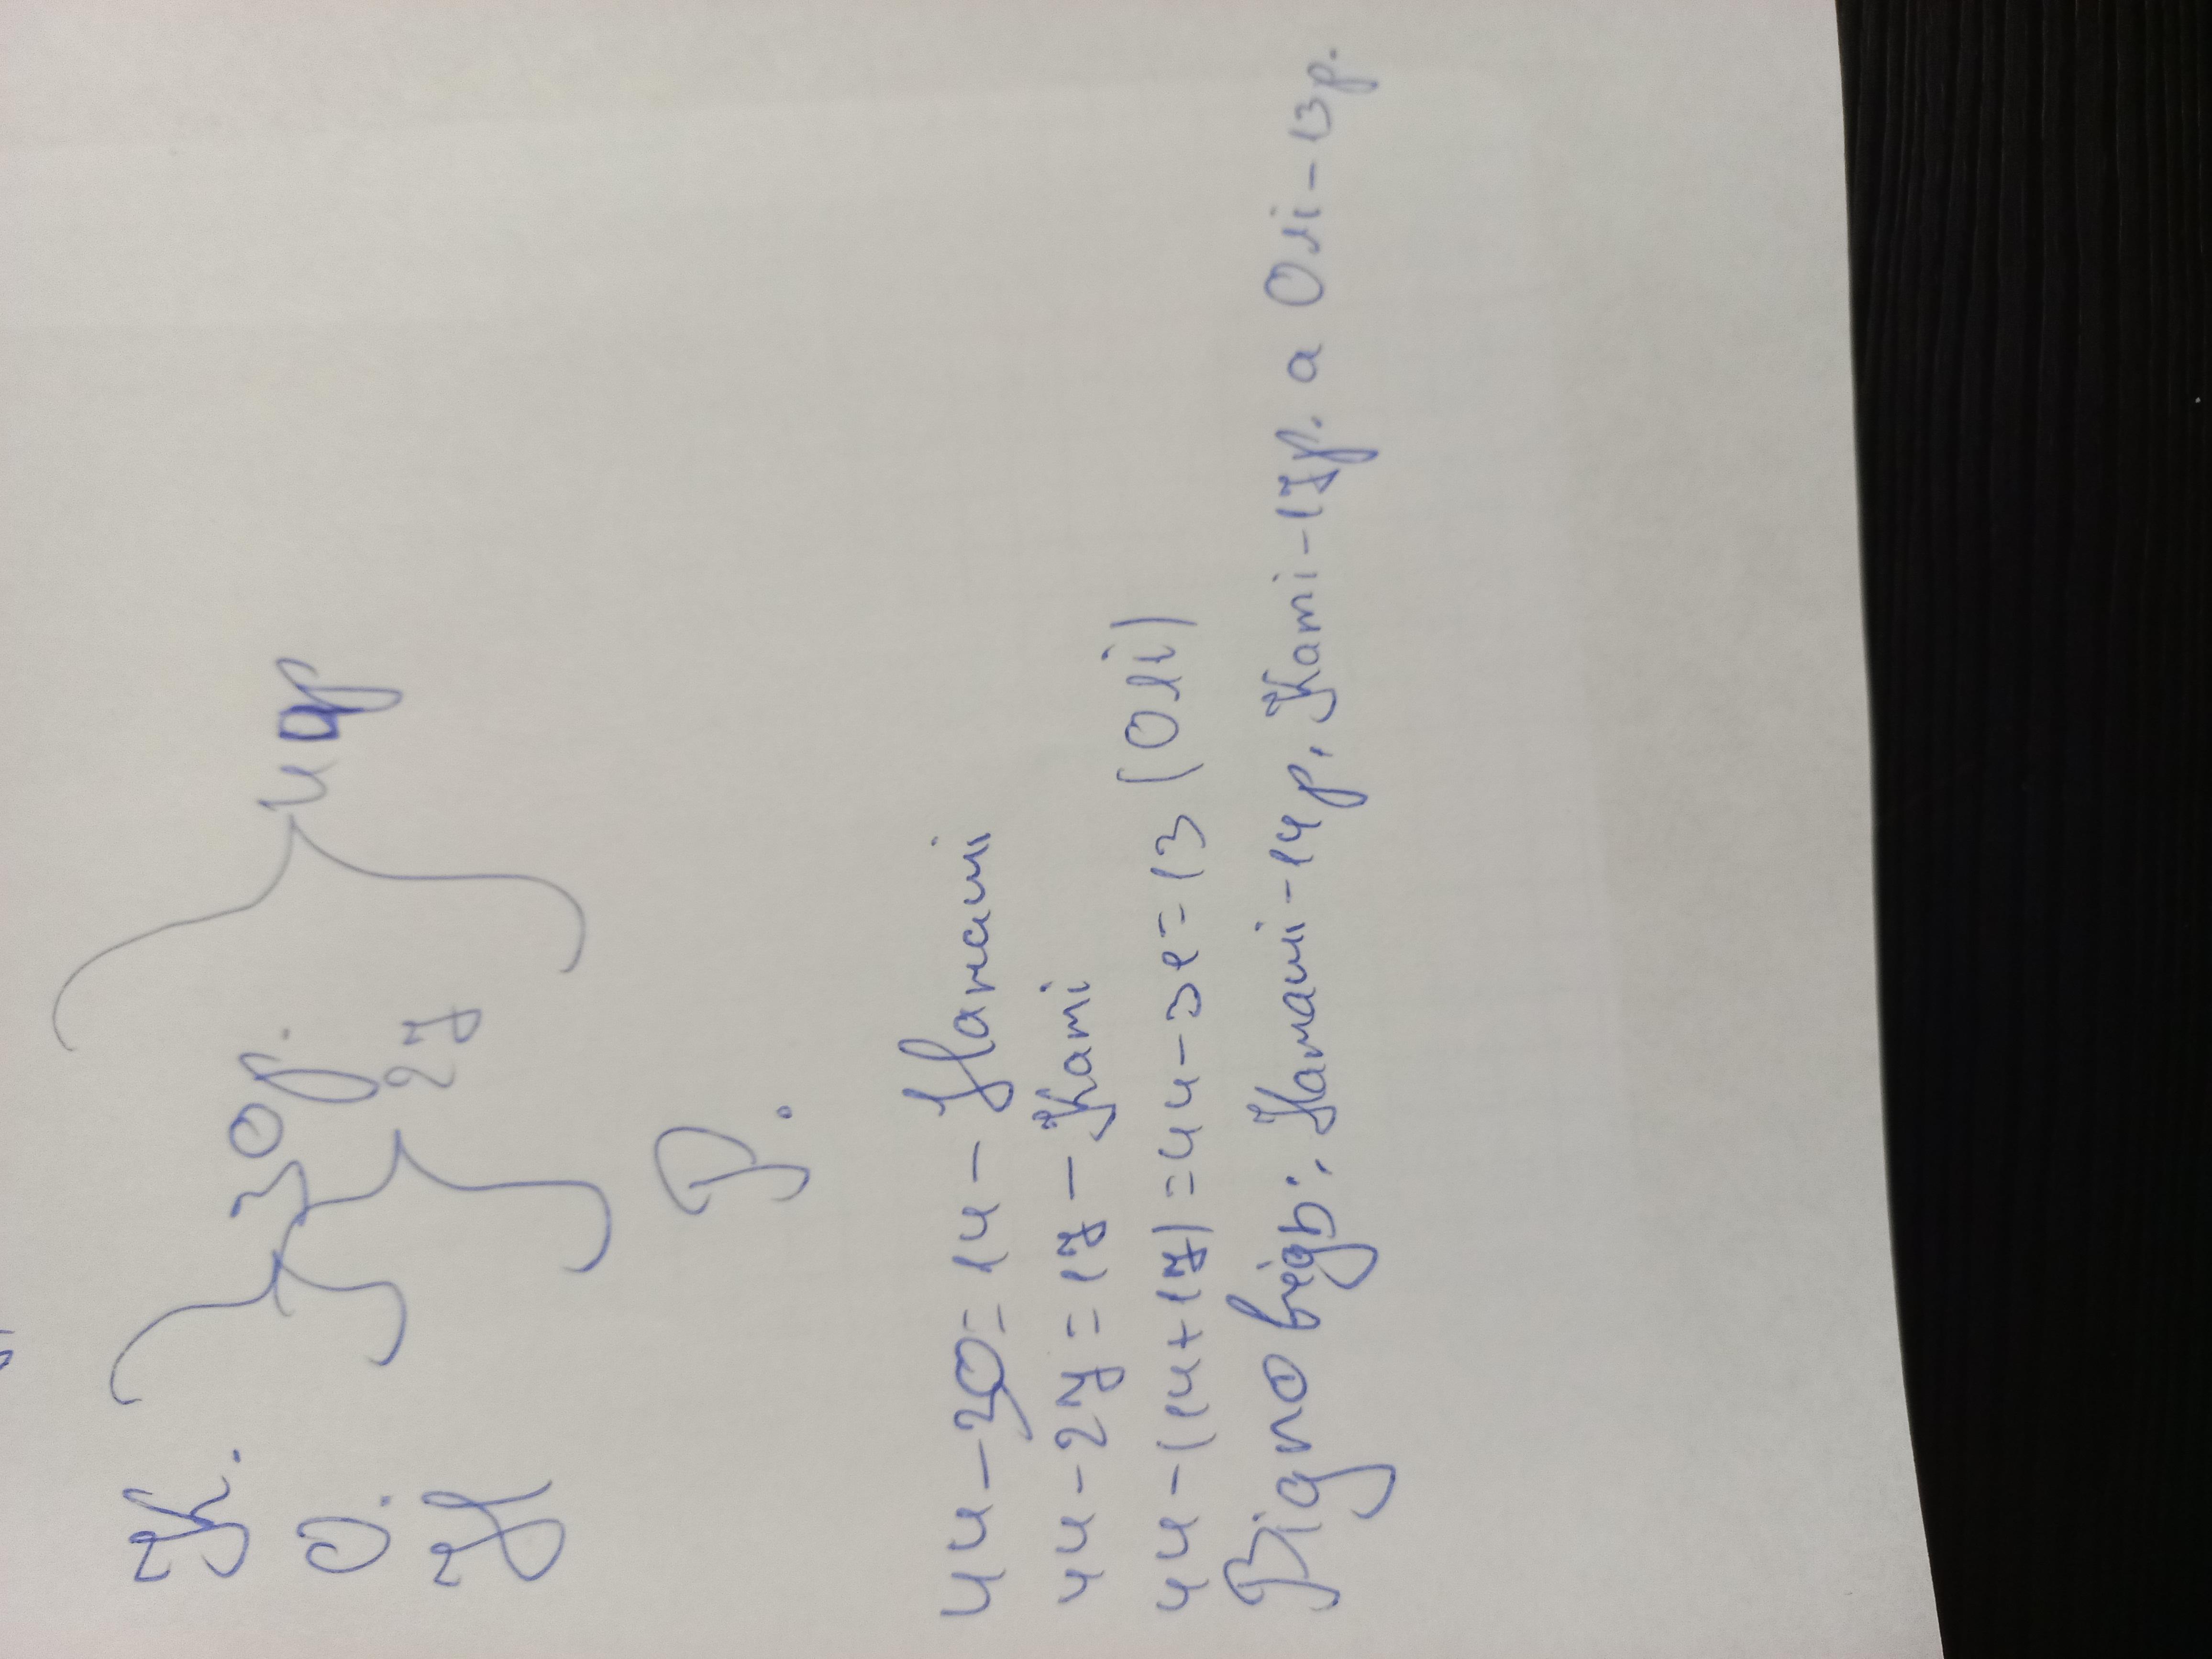 К.
30р.
О.
27
Н
44р
Р.
44-30=14 - Наташі
44-27=17 - Каті
44-(14+17)=44-31=13 (Олі)
Відповідь: Наташі-14р, Каті-17р. а Олі-13р.